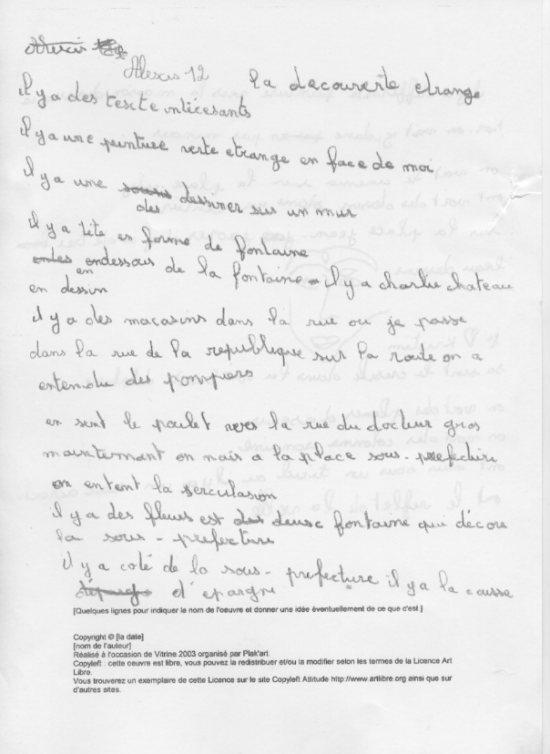 Alexis
Alexis 12 la decouverte etrange
il y a des texte intéresants
il y a une peinture verte etrange en face de moi
il y a une souris dessiner sur un mur
des
il y a tête en forme de fontaine
en dessous de la fontaine il y a charlie chateau
en
en dessin
il y a des macasins dans la rue ou je passe
dans la rue de la republique sur la route on a
entendu des pompiers
en sent le poulet vers la rue du docteur gros
mainternant on nais a la place sous-prefecture
on entent la serculasion
il y a des fleurs est des deuse fontaine que décore
la sous-prefecture
il y a coté de la sous-prefecture il y a la caisse
d'epargne
[Quelques lignes pour indiquer le nom de l'oeuvre et donner une idée éventuellement de ce que c'est ]
Copyright © [la date]
[nom de l'auteur]
Réalisé à l'occasion de Vitrine 2003 organisé par Plak'art.
Copyleft : cette oeuvre est libre, vous pouvez la redistribuer et/ou la modifier selon les termes de la Licence Art
Libre.
Vous trouverez un exemplaire de cette Licence sur le site Copyleft Attitude http://www.artlibre.org ainsi que sur
d'autres sites.